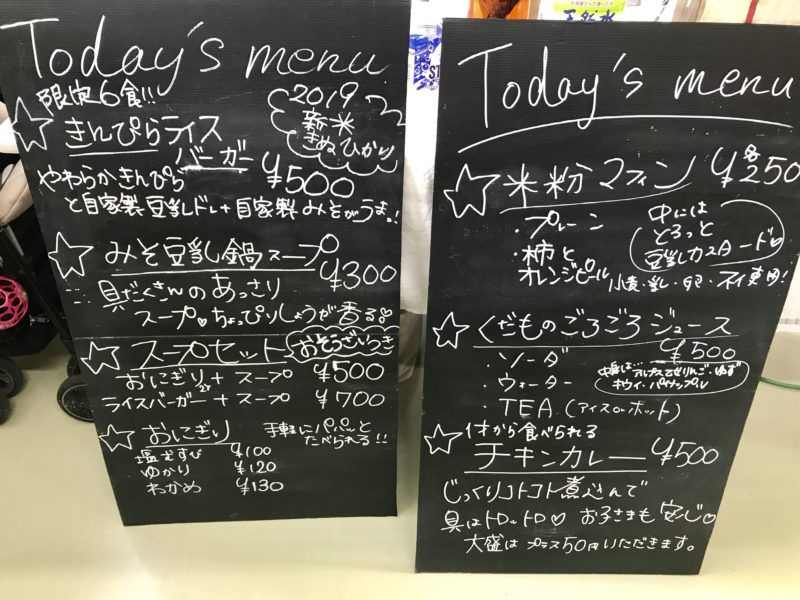 Today's menu
限定6食!!
2019
新米
きぬひかり
☆きんぴらライス
バーガー
¥500
やわらかきんぴら
と自家製豆乳ドレ+自家製みそがうま。!
☆みそ豆乳鍋スープ
¥300
具だくさんのあっさり
スープ♡ちょっぴりしょうが香る♡
☆スープセット
おそうざいつき
おにぎり+スープ ¥500
ライスバーガー+スープ ¥700
☆おにぎり
手軽にパパッと
たべられる!!
塩むすび ¥100
ゆかり ¥120
わかめ ¥130
Today's menu
☆米粉マフィン 各¥250
・プレーン
・柿と
オレンジピール
中には
とろっと
豆乳カスタード♡
小麦・乳・卵・不使用!
☆くだものごろごろジュース
¥500
・ソーダ
・ウォーター
・TEA(アイスorホット)
中身は…アルプス乙女りんご・ゆず
キウイ・パイナップル
☆1才から食べられる
チキンカレー ¥500
じっくりコトコト煮込んで
具はトロットロ♡ お子さまも安心♡
大盛は プラス50円いただきます。